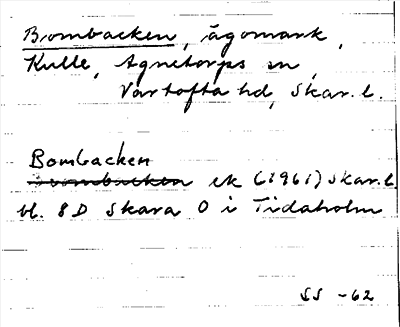 Bombacken, ägomark,
Kulle, Agnetorps sn,
Vartofta hd, Skar. l.
Bombacken
ek (1961) Skar. l.
bl. 8D Skara O i Tidaholm
SS -62